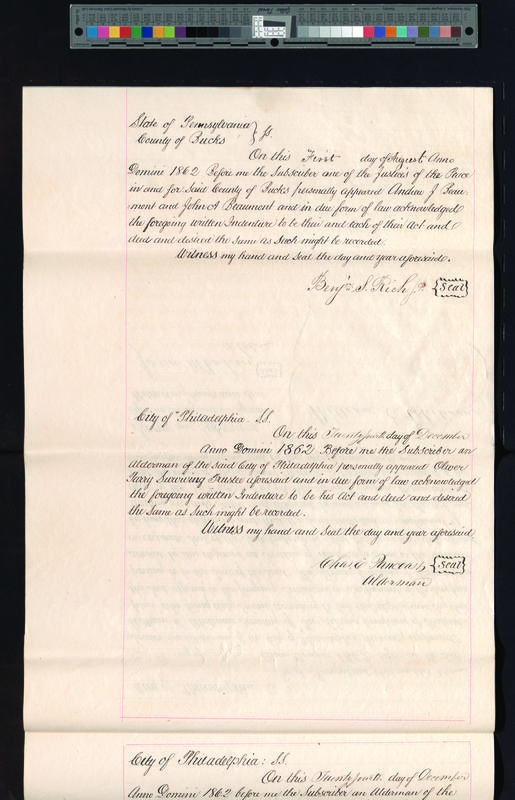 State of Pennsylvania
County of Bucks } ss.
On this First day of August Anno
Domini 1862 Before me the Subscriber one of the Justices of the Peace
in and for Said County of Bucks personally appeared Andrew J Beau
mont and John A Beaumont and in due form of law acknowledged
the foregoing written Indenture to be their and each of their Act and
deed and desired the Same as Such might be recorded.
Witness my hand and Seal the day and year aforesaid.
Benj. S. Rich J.P. {Seal}
City of Philadelphia SS.
On this Twenty fourth day of December
Anno Domini 1862 Before me the Subscriber an
Alderman of the said City of Philadelphia personally appeared Oliver
Parry Surviving Trustee aforesaid and in due form of law acknowledged
the foregoing written Indenture to be his Act and deed and desired
the Same as Such might be recorded.
Witness my hand and Seal the day and year aforesaid
{Seal}
Alderman
City of Philadelphia: SS.
On this Twenty fourth day of December
Anno Domini 1862 before me the Subscriber an Alderman of the